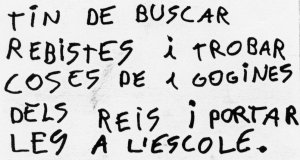 TIN DE BUSCAR
REBISTES i TROBAR
COSES DE 1 GOGINES
DELS REIS i PORTAR
LES A L'ESCOLE.